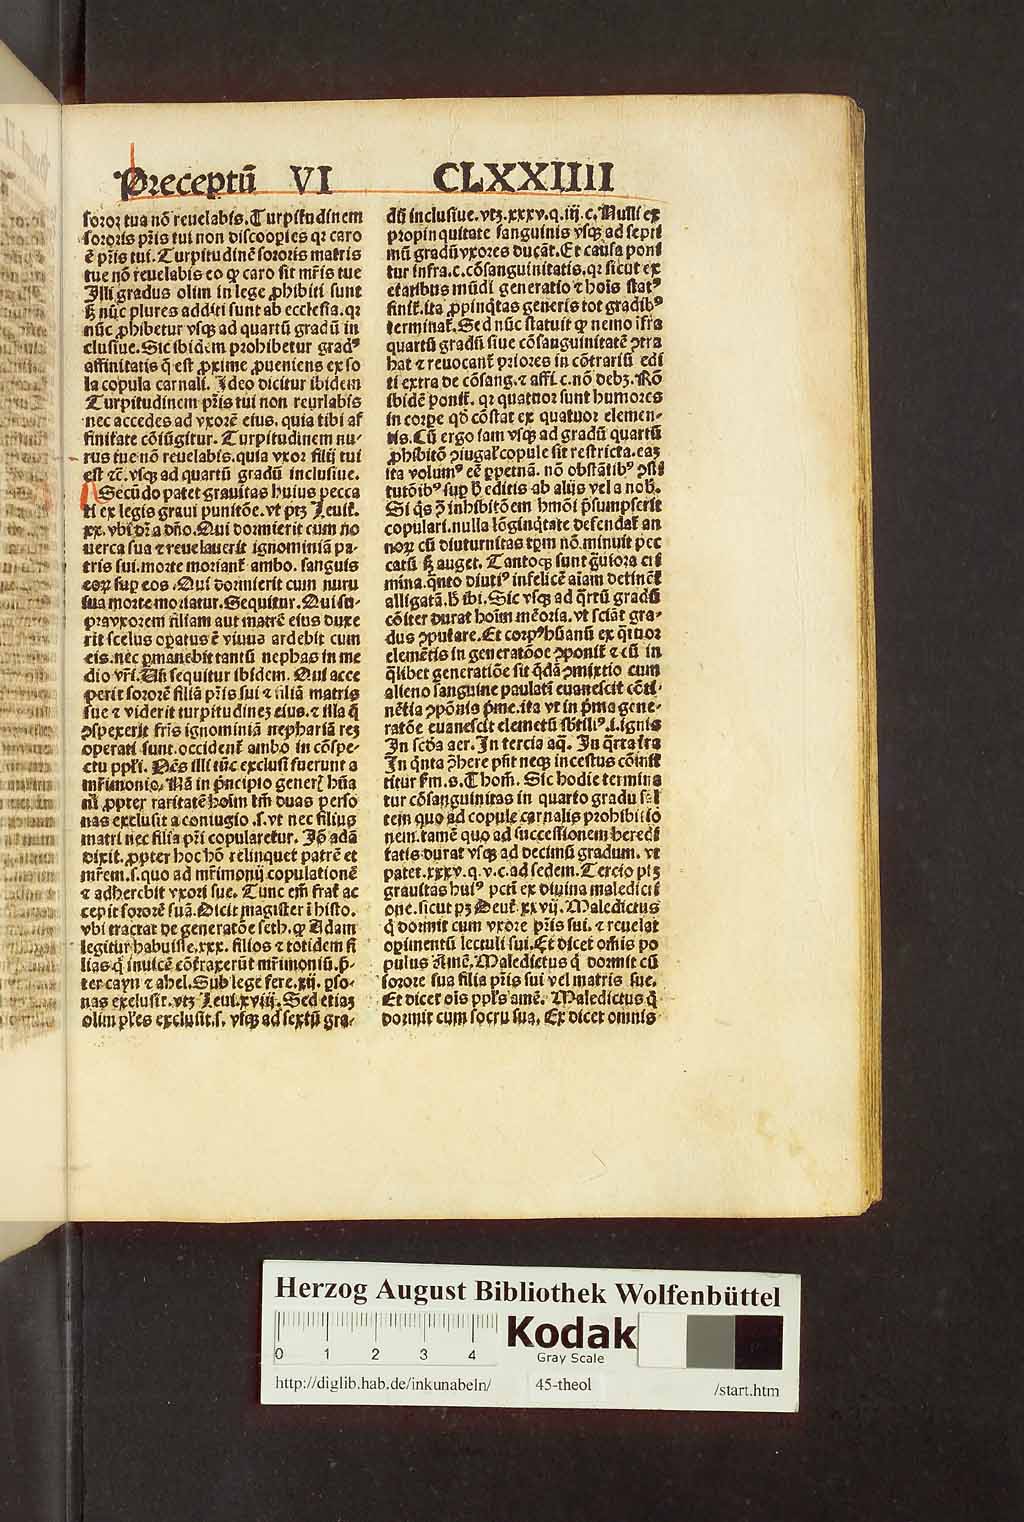 Preceptū VI CLXXIIII
soror tua nō reuelabis. Turpitudinem
sororis pr̄is tui non discooples qr caro
ē pr̄is tui. Turpitudinē sororis matris
tue nō reuelabis eo ꝙ caro sit mr̄is tue
Illi gradus olim in lege ꝓhibiti sunt
sꝫ nūc plures additi sunt ab ecclesia. qr
nūc ꝓhibetur vsqꝫ ad quartū gradū in
clusiue. Sic ibidem prohibetur gradꝰ
affinitatis q̄ est ꝓxime ꝓueniens ex so
la copula carnali. Ideo dicitur ibidem
Turpitudinem pr̄is tui non reurlabis
nec accedes ad vxorē eius. quia tibi af
finitate cōiūgitur. Turpitudinem nu-
rus tue nō reuelabis. quia vxor filij tui
est ⁊c̄. vsqꝫ ad quartū gradū inclusiue.
Secūdo patet grauitas huius pecca
ti ex legis graui punitōe. vt ptꝫ Leuit̄.
xx. vbi dr̄ a dn̄o. Qui dormierit cum no
uerca sua ⁊ reuelauerit ignominiā pa-
tris sui. morte moriant̄ ambo. sanguis
eoꝝ suꝑ eos. Qui dormierit cum nuru
sua morte moriatur. Sequitur. Qui su-
pra vxorem filiam aut matrē eius duxe
rit scelus oꝑatus ē viuus ardebit cum
eis. nec ꝑmanebit tantū nephas in me
dio vr̄i. Un̄ sequitur ibidem. Qui acce
perit sororē filiā pr̄is sui ⁊ filiā matris
sue ⁊ viderit turpitudineꝫ eius. ⁊ illa q̄
ꝯspexerit fr̄is ignominiā nephariā reꝫ
operati sunt. occident̄ ambo in cōspe-
ctu ppl̄i. Oēs illi tūc exclusi fuerunt a
mr̄imonio. Nā in pͥncipio generꝭ hūa
ni ꝓpter raritatē hoīm tm̄ duas perso
nas exclusit a coniugio .s. vt nec filius
matri nec filia pr̄i copularetur. Iō adā
dixit. ꝓpter hoc hō relinquet patrē et
mr̄em. s. quo ad mr̄imonij copulationē
⁊ adherebit vxori sue. Tunc em̄ frat̄ ac
cepit sororē suā. Dicit magister ī histo.
vbi tractat de generatōe seth. ꝙ Adam
legitur habuisse .xxx. filios ⁊ totidem fi
lias q̄ inuicē cōtraxerūt mr̄imoniū. p̄-
ter cayn ⁊ abel. Sub lege fere .xij. ꝑso-
nas exclusit. vtꝫ Leui. xviij. Sed etiaꝫ
olim pl̄es exclusit. s. vsqꝫ ad sextū gra-
dū inclusiue. vtꝫ .xxxv. q. iij. c. Nulli ex
propinquitate sanguinis vsqꝫ ad septi
mū gradū vxores ducāt. Et causa poni
tur infra. c. cōsanguinitatis. qr sicut ex
etatibus mūdi generatio ⁊ hoīs statꝰ
finit̄. ita ꝓpinqͥtas generis tot gradibꝰ
terminat̄. Sed nūc statuit ꝙ nemo īfra
quartū gradū siue cōsanguinitatē ꝯtra
hat ⁊ reuocant̄ priores in cōtrariū edi
ti extra de cōsang. ⁊ affi. c. nō debꝫ. Rō
ibidē ponit̄. qr quatuor sunt humores
in corpe qd̄ cōstat ex quatuor elemen-
tis. Cū ergo iam vsqꝫ ad gradū quartū
ꝓhibitō ꝯiugal̄ copule sit restricta. eaꝫ
ita volumꝰ eē ꝑpetnā. nō obstātibꝰ ꝯsti
tutōibꝰ suꝑ h̄ editis ab alijs vel a nob̄.
Si qͥs ꝯ̄ inhibitōem hmōi p̄sumpserit
copulari. nulla lōginqͥtate defendat̄ an
noꝝ cū diuturnitas tꝑm nō. minuit pec
catū sꝫ auget. Tantoqꝫ sunt gͣuiora cri
mina. qͣnto diutiꝰ infelicē aīam detinēt
alligatā. h̄ ibi. Sic vsqꝫ ad qͣrtū gradū
cōiter durat hoīm mēoria. vt sciāt gra-
dus ꝯputare. Et corpꝰ hūanū ex qͣtuor
elemētis in generatōoe ꝯponit̄ ⁊ cū in
qͣlibet generatiōe sit qͣdā ꝯmixtio cum
alieno sanguine paulati euanescit cōti-
nētia ꝯpōnis pͥme. ita vt in pͥma gene-
ratōe euanescit elemetū sbtiliꝰ. i. ignis
In scd̄a aer. In tercia aq̄. In qͣrta tra
In qͥnta ꝯ̄here pn̄t neqꝫ incestus cōmit
titur fm̄. s. Thom̄. Sic hodie termina
tur cōsanguinitas in quarto gradu sal
tem quo ad copule carnalis prohibitio
nem. tamē quo ad successionem heredi
tatis durat vsqꝫ ad decimū gradum. vt
patet .xxxv. q. v. c. ad sedem. Tercio ptꝫ
grauitas huiꝰ pcti ex diuina maledicti
one. sicut pꝫ Deut̄. xxvij. Maledictus
q̄ dormit cum vxore pr̄is sui. ⁊ reuelat
oꝑimentū lectuli sui. Et dicet om̄is po
pulus Amē. Maledictus q̄ dormit cū
sorore sua filia pr̄is sui vel matris sue.
Et dicet oīs ppl̄s amē. Maledictus q̄
dormit cum socru sua. Et dicet omnis
Herzog August Bibliothek Wolfenbüttel
0 1 2 3 4
Kodak
Gray Scale
http://diglib.hab.de/inkunabeln/ 45-theol /start.htm